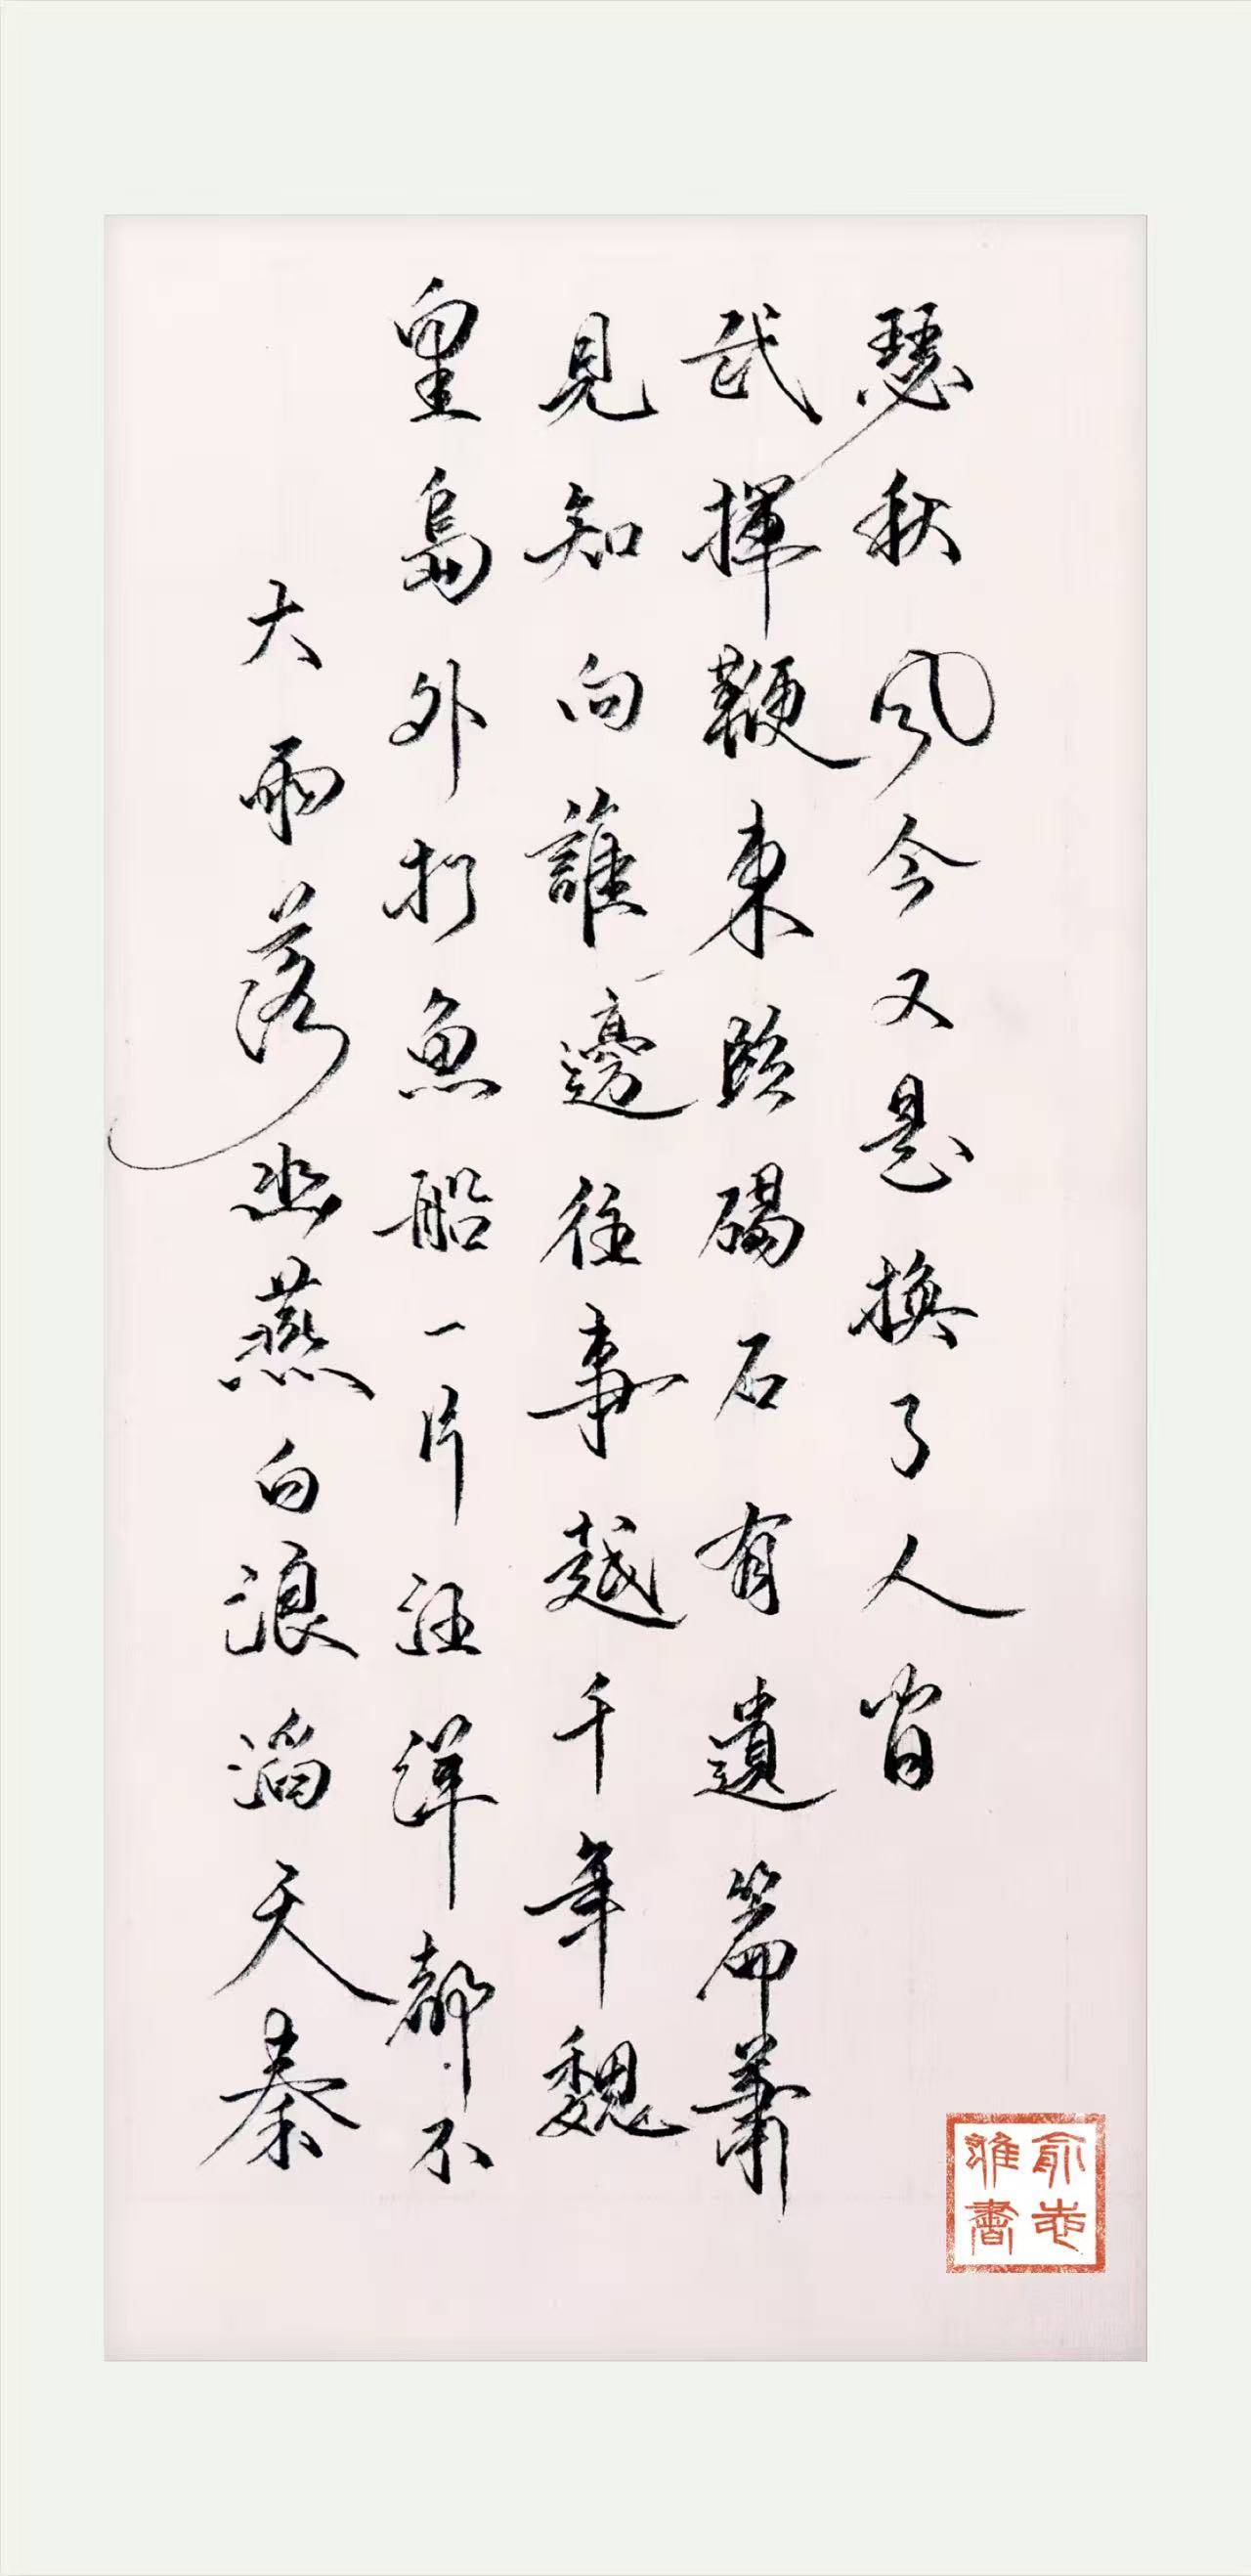 大雨落幽燕白浪滔天秦
皇島外打魚船一片汪洋都不
見知向誰邊往事越千年魏
武揮鞭東臨碣石有遺篇蕭
瑟秋風今又是換了人間